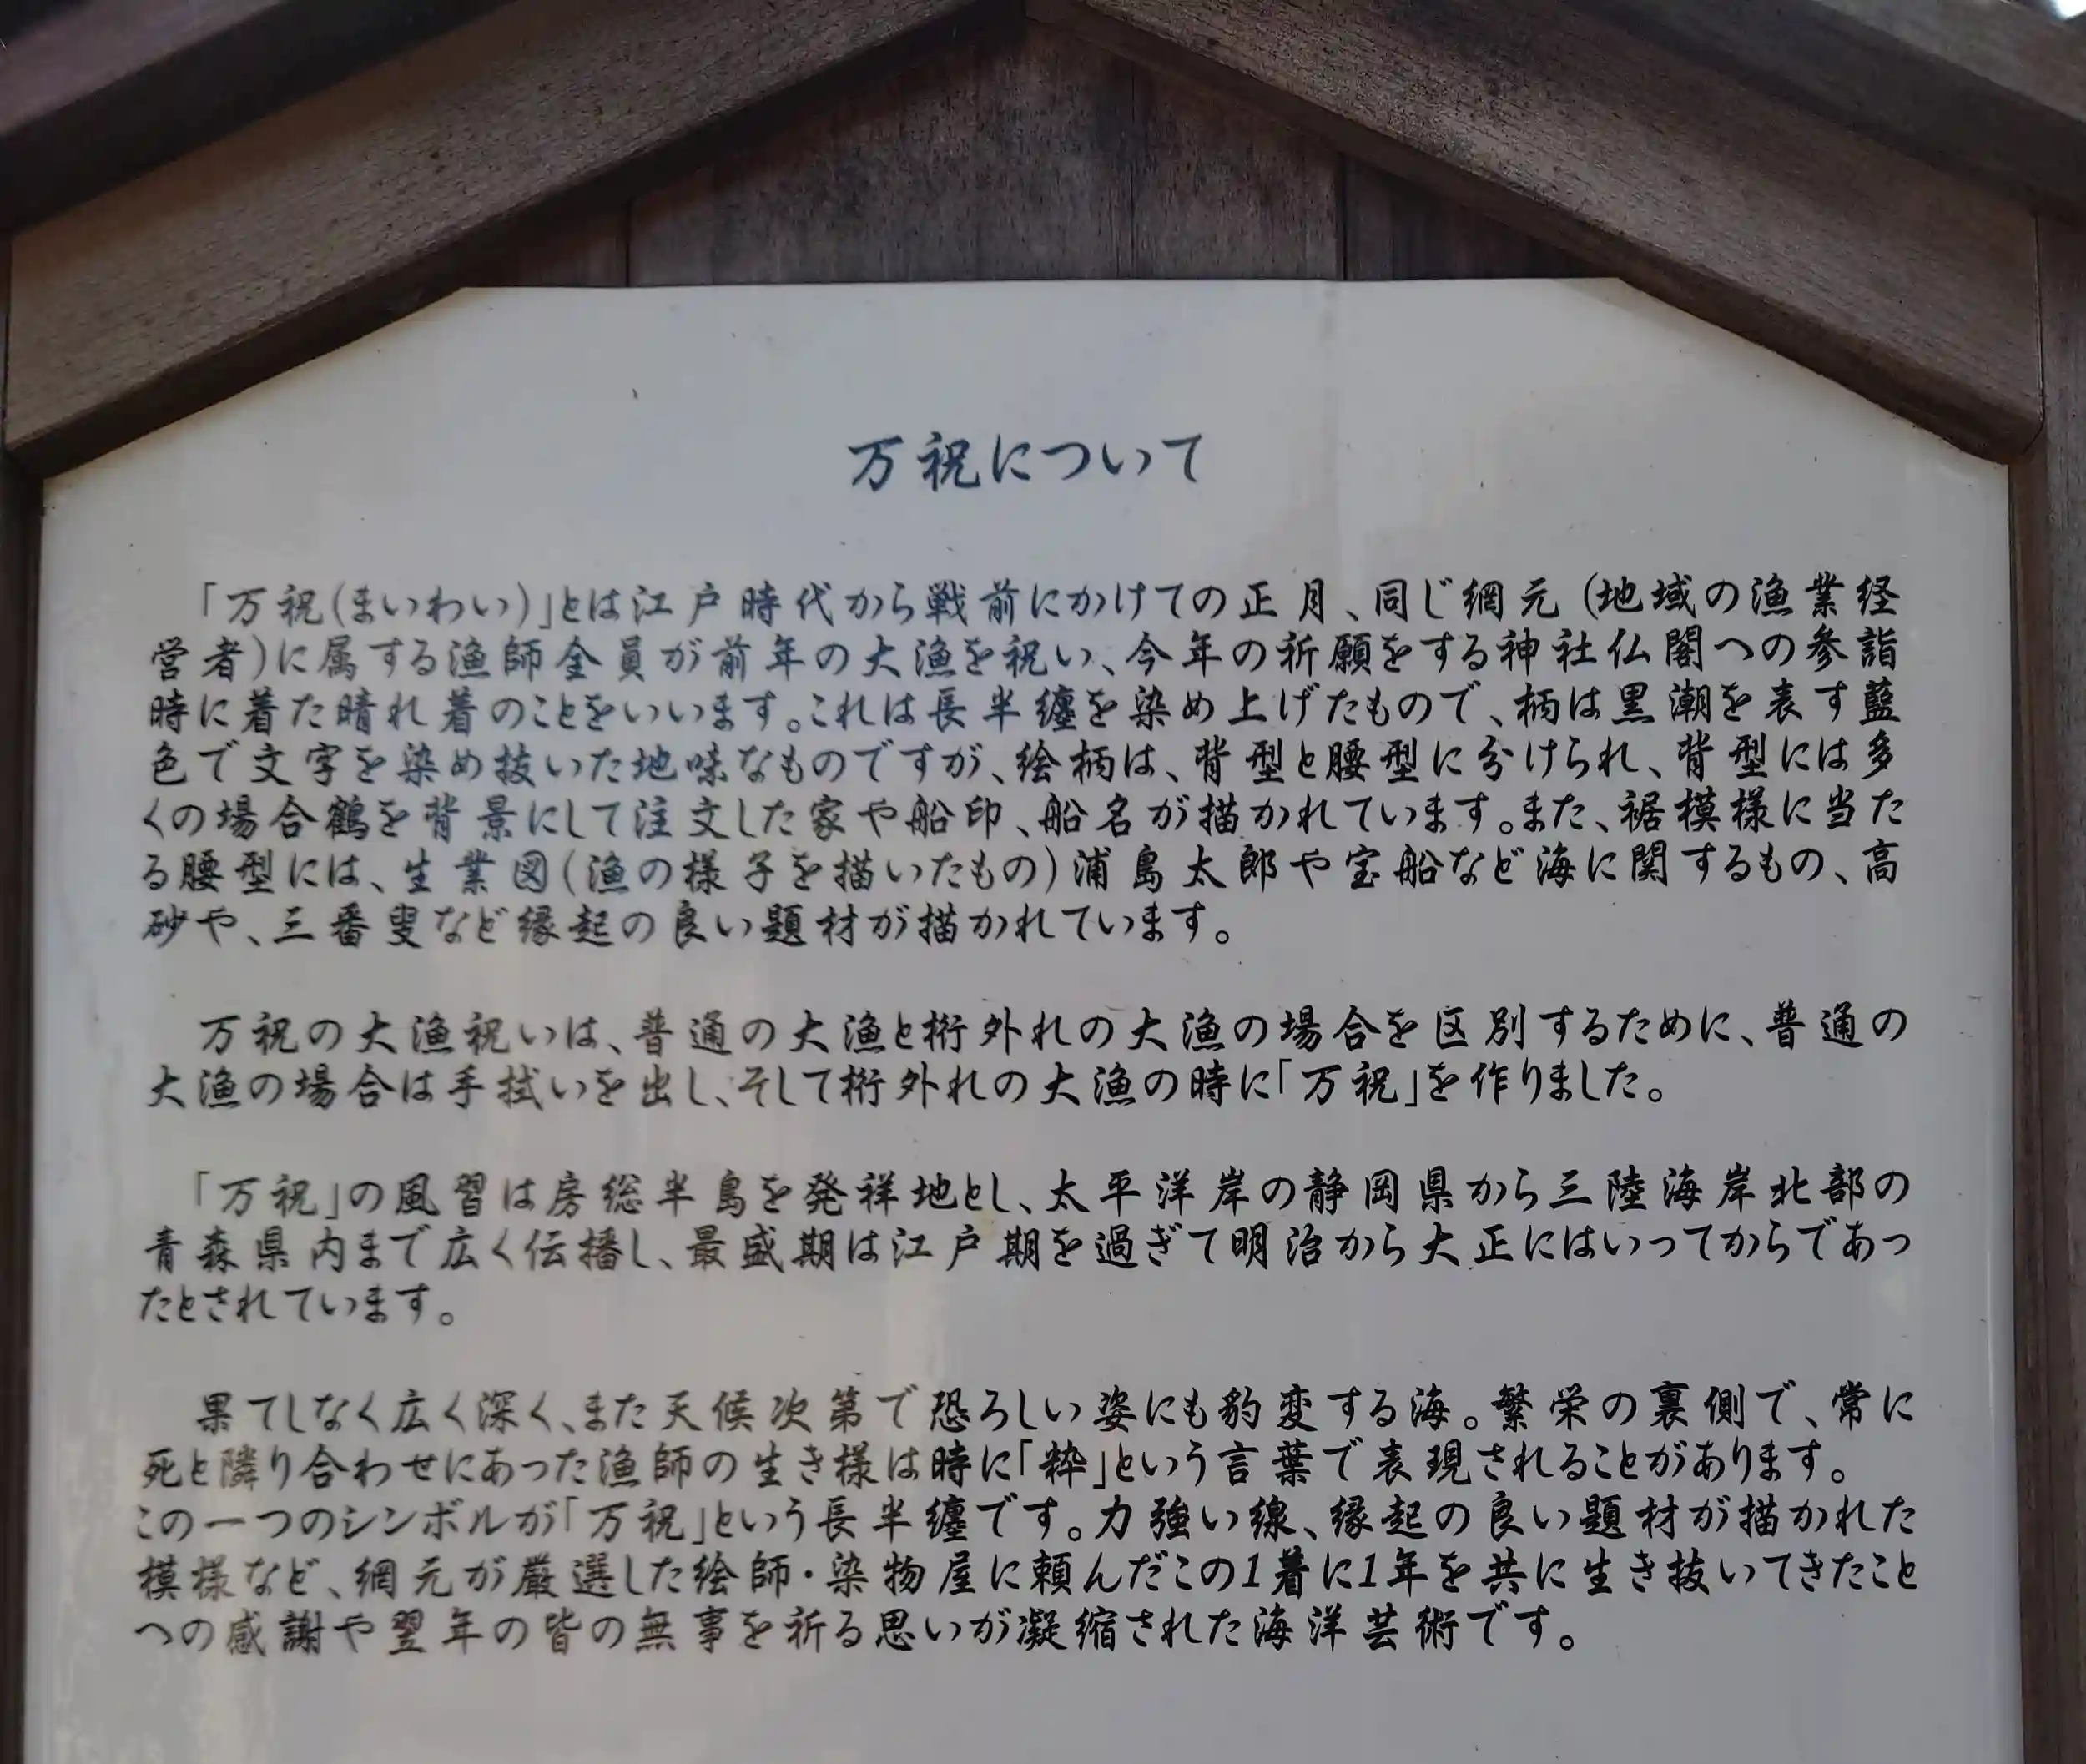 万祝について
「万祝(まいわい)」とは江戸時代から戦前にかけての正月、同じ網元(地域の漁業経
営者)に属する漁師全員が前年の大漁を祝い、今年の祈願をする神社仏閣への参詣
時に着た晴れ着のことをいいます。これは長半纏を染め上げたもので、柄は黒潮を表す藍
色で文字を染め抜いた地味なものですが、絵柄は、背型と腰型に分けられ、背型には多
くの場合鶴を背景にして注文した家や船印、船名が描かれています。また、裾模様に当た
る腰型には、生業図(漁の様子を描いたもの)浦島太郎や宝船など海に関するもの、高
砂や、三番叟など縁起の良い題材が描かれています。
万祝の大漁祝いは、普通の大漁と桁外れの大漁の場合を区別するために、普通の
大漁の場合は手拭いを出し、そして桁外れの大漁の時に「万祝」を作りました。
「万祝」の風習は房総半島を発祥地とし、太平洋岸の静岡県から三陸海岸北部の
青森県内まで広く伝播し、最盛期は江戸期を過ぎて明治から大正にはいってからであっ
たとされています。
果てしなく広く深く、また天候次第で恐ろしい姿にも豹変する海。繁栄の裏側で、常に
死と隣り合わせにあった漁師の生き様は時に「粋」という言葉で表現されることがあります。
この一つのシンボルが「万祝」という長半纏です。力強い線、縁起の良い題材が描かれた
模様など、網元が厳選した絵師・染物屋に頼んだこの1着に1年を共に生き抜いてきたこと
への感謝や翌年の皆の無事を祈る思いが凝縮された海洋芸術です。